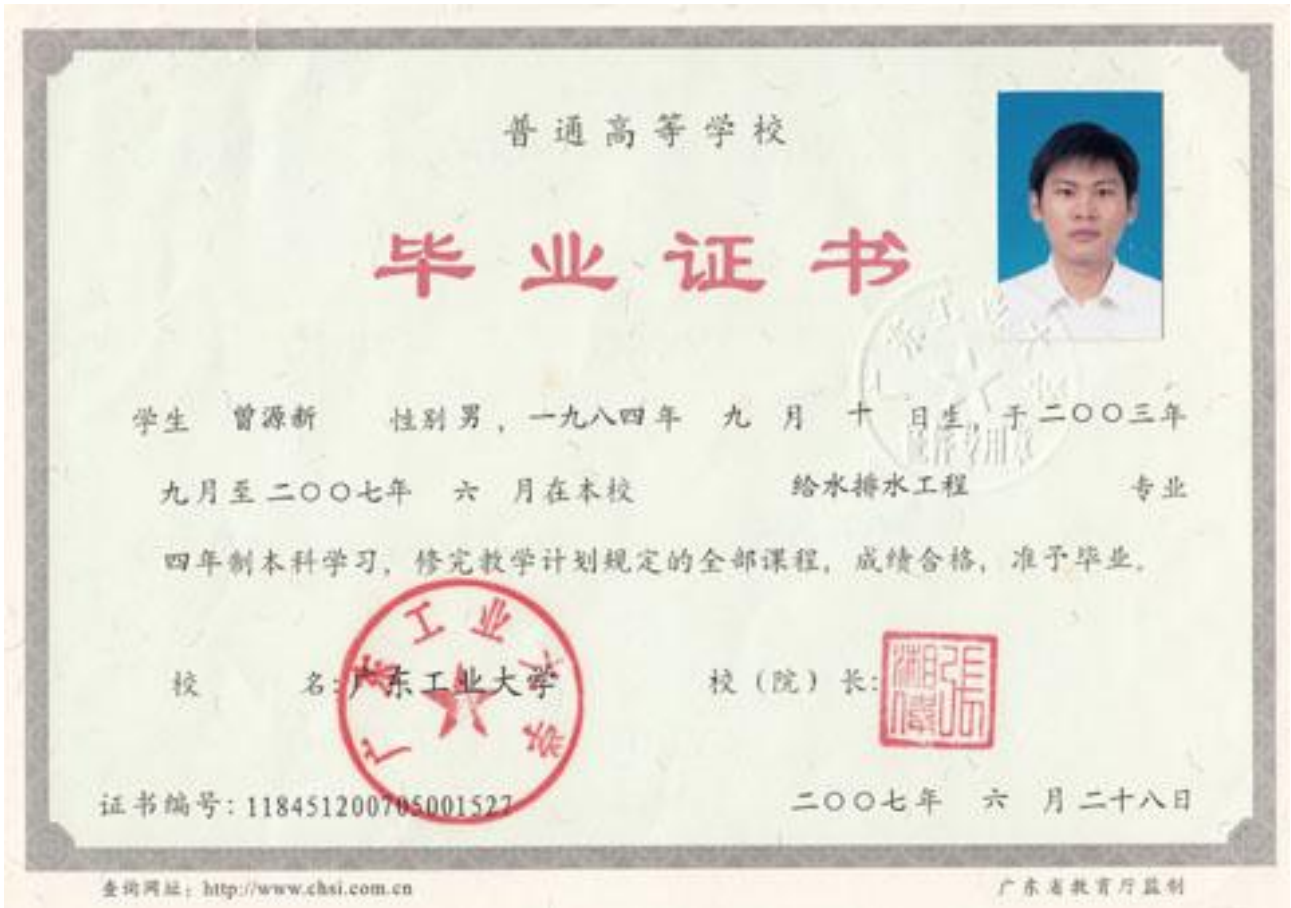 普通高等学校
毕业证书
学生 曾源新 性别 男，一九八四年 九 月 十 日生，于二〇〇三年
九月至二〇〇七年 六 月在本校 给水排水工程 专业
四年制本科学习，修完教学计划规定的全部课程，成绩合格，准予毕业。
广东工业大学
校 名：广东工业大学 校（院）长：
证书编号：118451200705001527 二〇〇七年 六 月二十八日
查询网址：http://www.chsi.com.cn 广东省教育厅监制